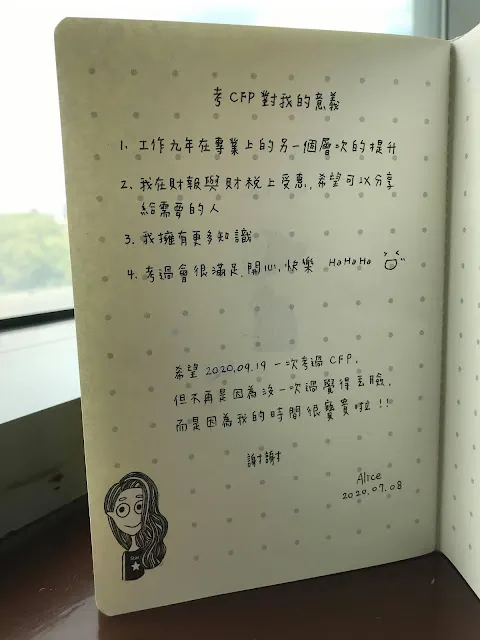 考CFP對我的意義
1. 工作九年在專業上的另一個層次的提升
2. 我在財報與財稅上受惠, 希望可以分享
給需要的人
3. 我擁有更多知識
4. 考過會很滿足, 開心, 快樂 HaHaHa
希望 2020.09.19 一次考過 CFP,
但不再是因為沒一次過覺得丟臉,
而是因為我的時間很寶貴啦!!
謝謝
Alice
2020.07.08
Star